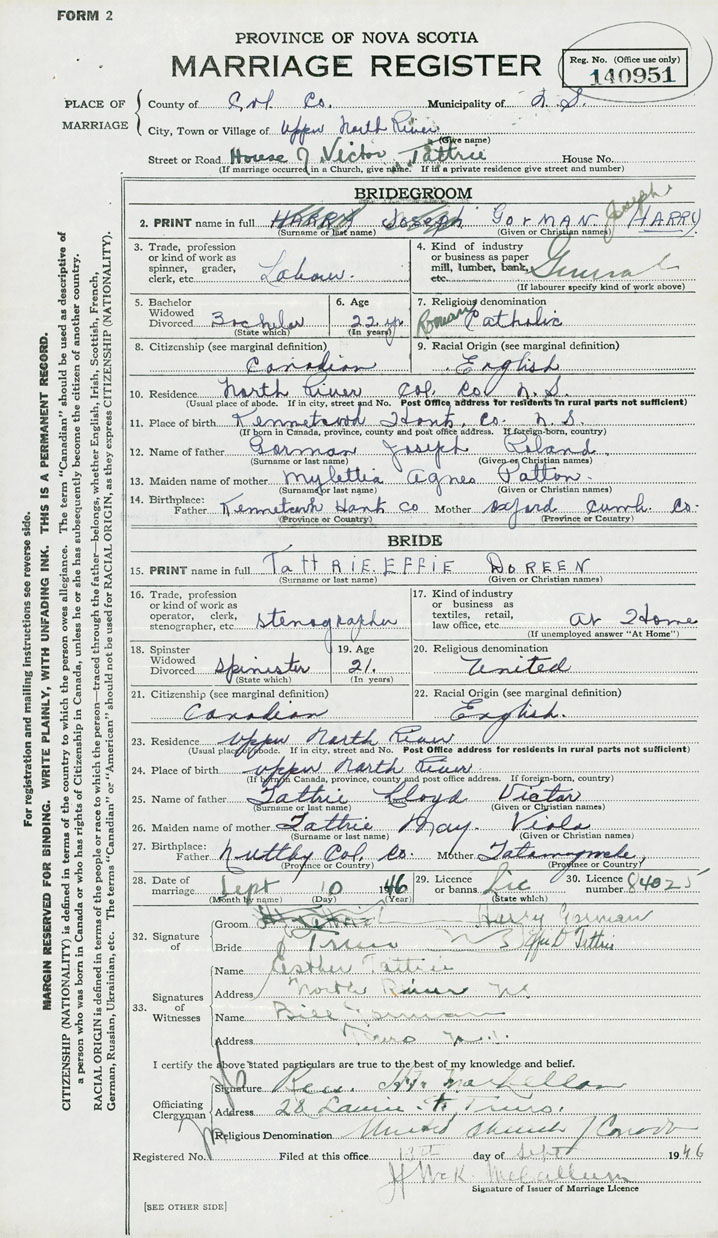 FORM 2
PROVINCE OF NOVA SCOTIA
MARRIAGE REGISTER
Reg. No. (Office use only)
140951
PLACE OF MARRIAGE
County of Col. Co. Municipality of N. S.
City, Town or Village of Upper North River
(Give name)
Street or Road House of Victor Tattrie House No.
(If marriage occurred in a Church, give name. If in a private residence give street and number)
BRIDEGROOM
2. PRINT name in full HARRY JOSEPH GORMAN. Joseph HARRY
(Surname or last name) (Given or Christian names)
3. Trade, profession or kind of work as spinner, grader, clerk, etc. Labour.
4. Kind of industry or business as paper mill, lumber, bank, etc. General
(If labourer specify kind of work above)
5. Bachelor Widowed Divorced Bachelor
(State which)
6. Age 22 yr
(In years)
7. Religious denomination
Roman Catholic
8. Citizenship (see marginal definition)
Canadian
9. Racial Origin (see marginal definition)
English
10. Residence North River Col. Co. N. S.
(Usual place of abode. If in city, street and No. Post Office address for residents in rural parts not sufficient)
11. Place of birth Hants Co. N. S.
(If born in Canada, province, county and post office address. If foreign-born, country)
12. Name of father Gorman Joseph Roland
(Surname or last name) (Given or Christian names)
13. Maiden name of mother Agnes Patton
(Surname or last name) (Given or Christian names)
14. Birthplace: Father Hants Co Mother Oxford Cumb. Co.
(Province or Country) (Province or Country)
BRIDE
15. PRINT name in full TATTRIE EFFIE DOREEN
(Surname or last name) (Given or Christian names)
16. Trade, profession or kind of work as operator, clerk, stenographer, etc. stenographer
17. Kind of industry or business as textiles, retail, law office, etc. at Home
(If unemployed answer "At Home")
18. Spinster Widowed Divorced Spinister
(State which)
19. Age 21.
(In years)
20. Religious denomination
United
21. Citizenship (see marginal definition)
Canadian
22. Racial Origin (see marginal definition)
English.
23. Residence Upper North River
(Usual place of abode. If in city, street and No. Post Office address for residents in rural parts not sufficient)
24. Place of birth Upper North River
(If born in Canada, province, county and post office address. If foreign-born, country)
25. Name of father Tattrie Lloyd Victor
(Surname or last name) (Given or Christian names)
26. Maiden name of mother Tattrie May. Viola
(Surname or last name) (Given or Christian names)
27. Birthplace: Father Nuttby Col. Co. Mother
(Province or Country) (Province or Country)
28. Date of marriage Sept 10 1946
(Month by name) (Day) (Year)
29. Licence or banns Lic
(State which)
30. Licence number 84025
32. Signature of
Groom Harry Gorman
Bride Effie D Tattrie
33. Signatures of Witnesses
Name Esther Tattrie
Address North River
Name Bill Gorman
Address Truro N.S.
I certify the above stated particulars are true to the best of my knowledge and belief.
Officiating Clergyman
Signature Rev. MacLellan
Address 28 Truro.
Religious Denomination United Church of Canada
Registered No. Filed at this office day of Sept 1946
J McK. McCallum
Signature of Issuer of Marriage Licence
[SEE OTHER SIDE]
For registration and mailing instructions see reverse side.
MARGIN RESERVED FOR BINDING. WRITE PLAINLY, WITH UNFADING INK. THIS IS A PERMANENT RECORD.
CITIZENSHIP (NATIONALITY) is defined in terms of the country to which the person owes allegiance. The term "Canadian" should be used as descriptive of
a person who was born in Canada or who has rights of Citizenship in Canada, unless he or she has subsequently become the citizen of another country.
RACIAL ORIGIN is defined in terms of the people or race to which the person—traced through the father—belongs, whether English, Irish, Scottish, French,
German, Russian, Ukrainian, etc. The terms "Canadian" or "American" should not be used for RACIAL ORIGIN, as they express CITIZENSHIP (NATIONALITY).